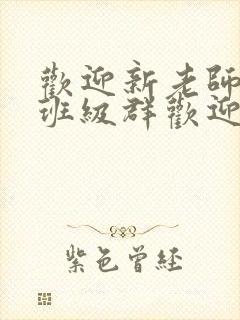 歡迎新老師
班級群歡迎
紫色曾經